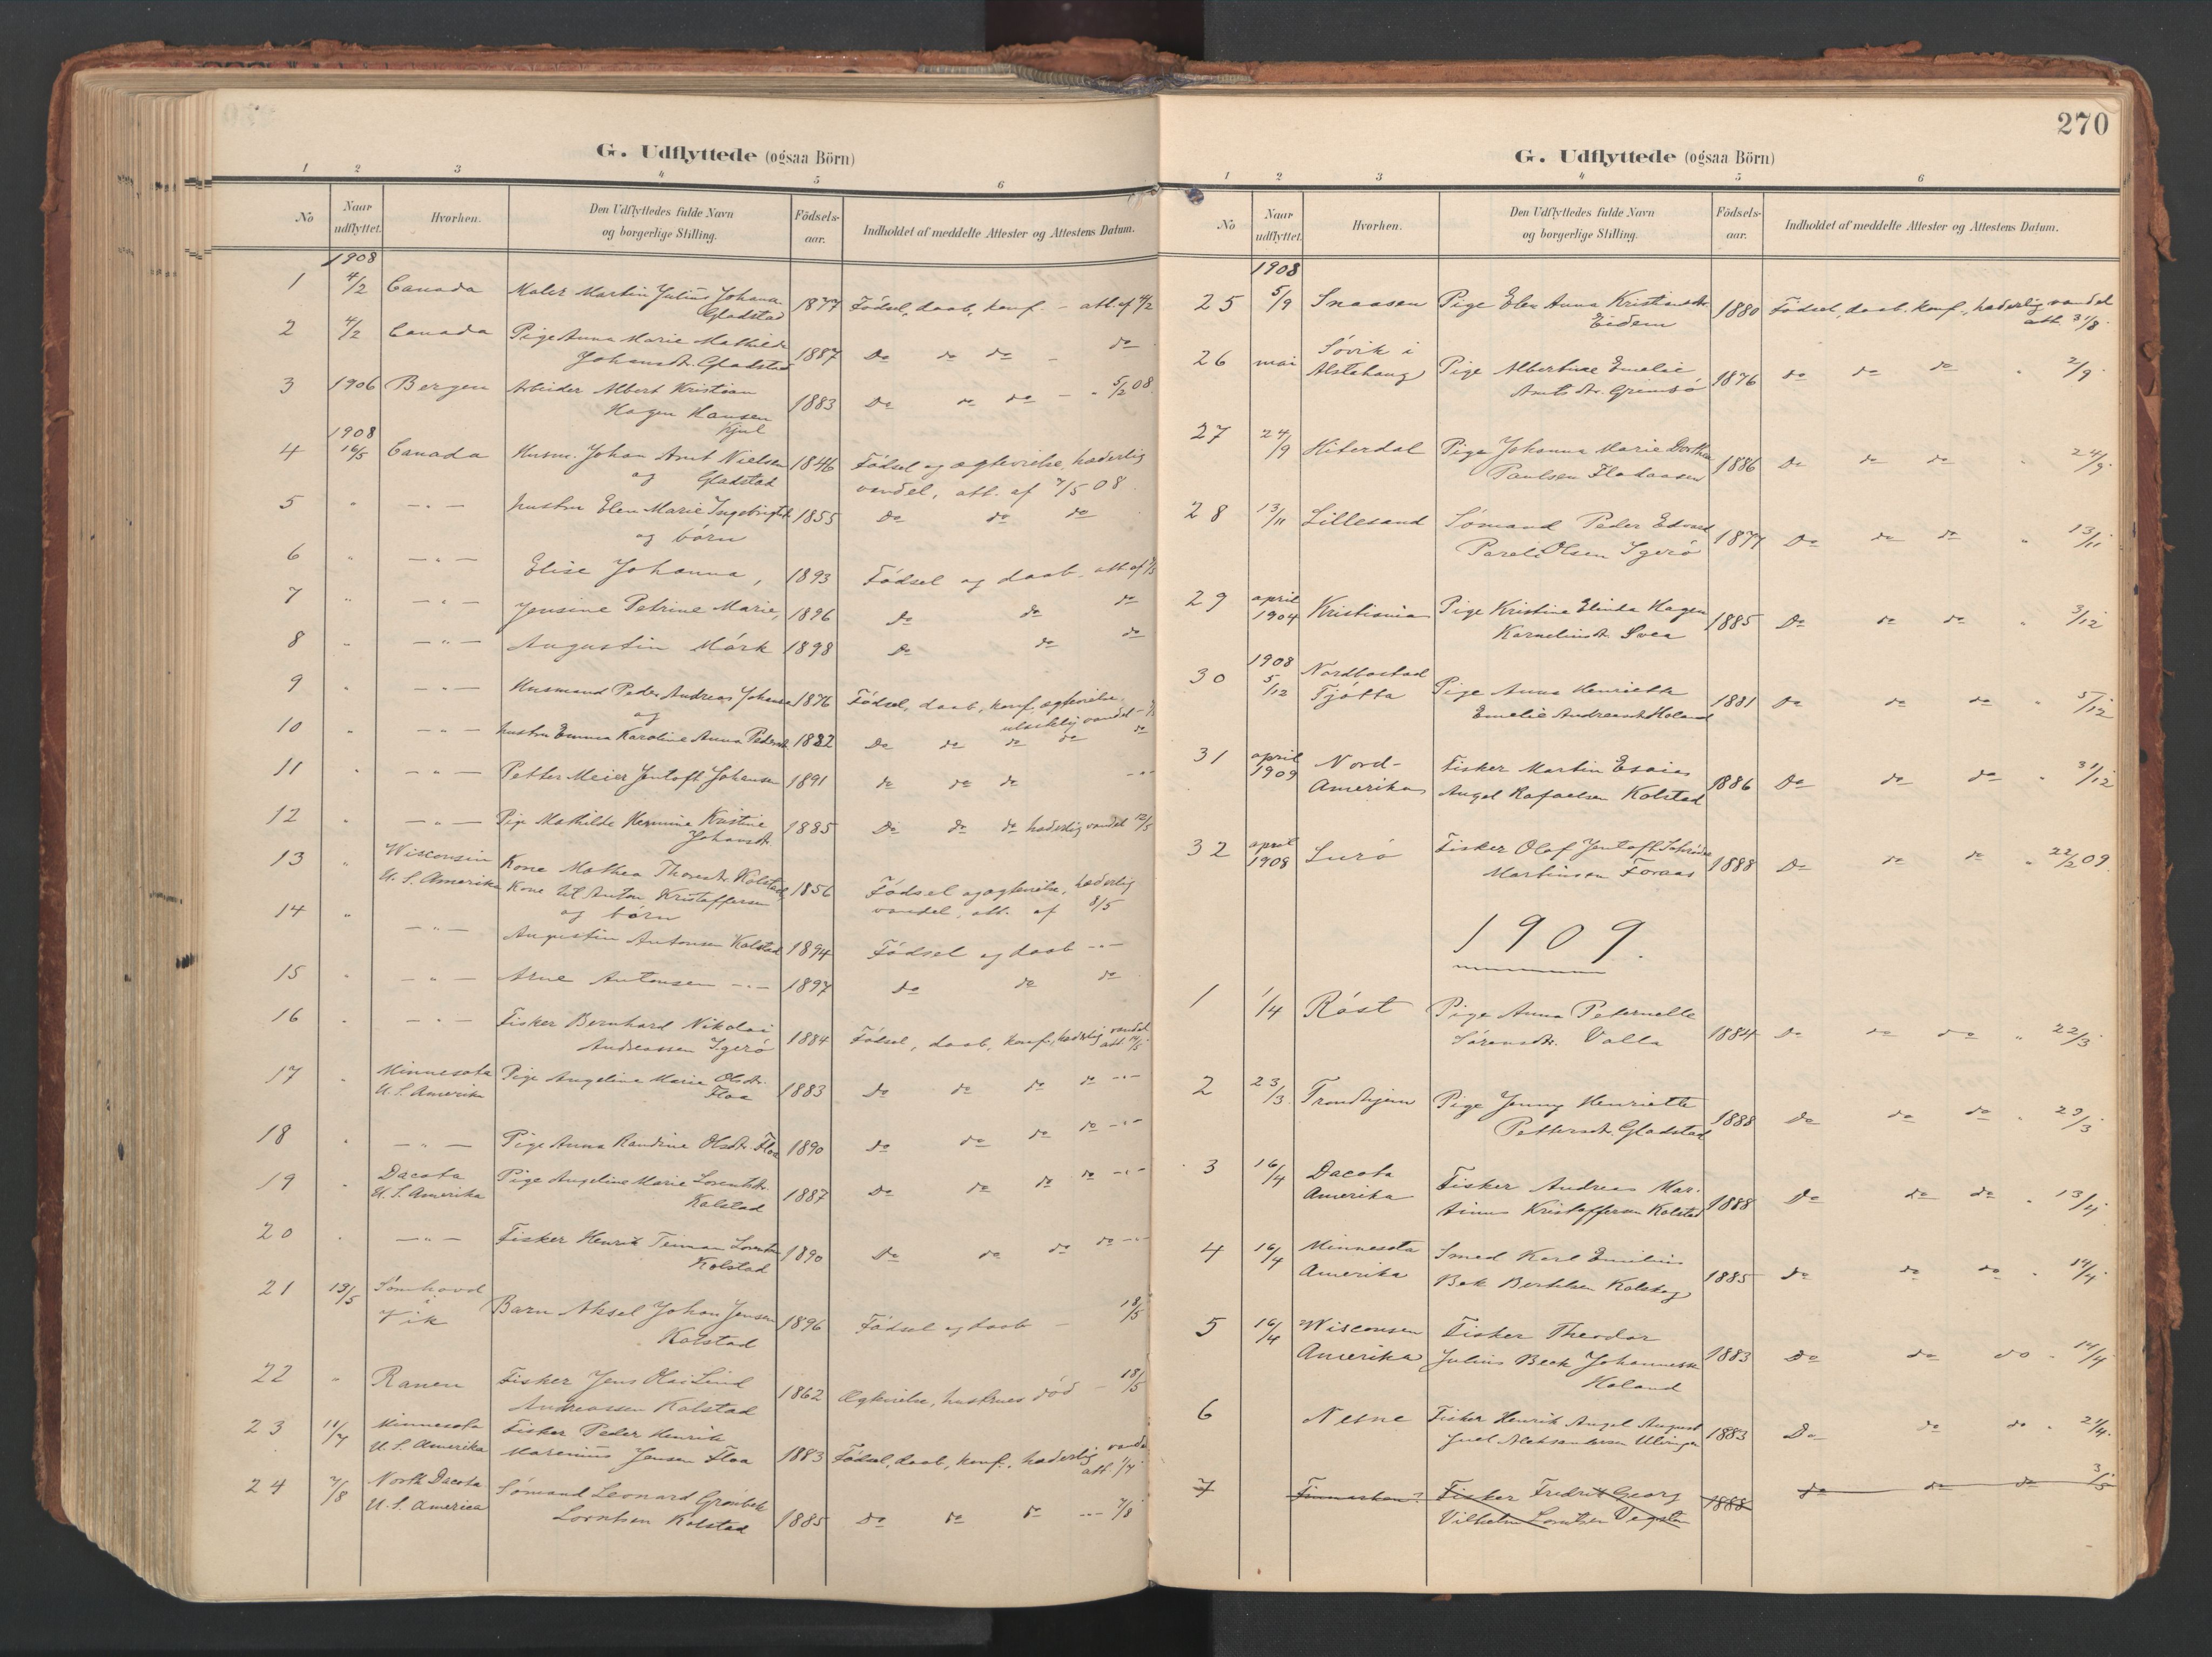 G. Udflyttede (ogsaa Börn)
1 2 3 4 5 6
No
Naar udflyttet.
Hvorhen.
Den Udflyttedes fulde Navn og borgerlige Stilling.
Födsels-aar.
Indholdet af meddelte Attester og Attestens Datum.
1908
1 4/2 Canada Maler Martin Julius Johans. 1877 Fødsel, daab, konf. - att. af 4/2
Gladstad
2 4/2 Canada Pige Anna Marie Mathilde do
Johansdr. Gladstad 1887 Do do do -
3 1906 Bergen Arbeider Albert Kristian 5/2 08.
Hagen Hansen 1883 Do do do -
Kjul
1908
4 16/5 Canada Husm. Johan Arnt Nielsen 1846 Fødsel og ægtevielse, hæderlig
og Gladstad vandel, att. af 7/5 08.
5 " - " - hustru Elen Marie Ingebrigtdr. 1855 Do do do
og børn
6 " - " - Elise Johanna, 1893 Fødsel og daab, att af 7/5
7 " - " - Jensine Petrine Marie, 1896 Do do do
8 " - " - Augustin Mørk 1898 Do do do
9 " - " - Husmand Peder Andreas Johansen 1876 Fødsel, daab, konf., ægtevielse,
og vandel
10 " - " - hustru Emma Karoline Anna Pedersdr. 1882 Do do do do do
11 " - " - Petter Meier Jentoft Johansen 1891 do do do - " -
12 " - " - Pige Mathilde Hermine Kristine 1885 Do do do hæderlig vandel 12/5
Johansdr.
13 " Wisconsin Kone Mathea Thoresdr. Kolstad,
U. S. Amerika Kone til Anton Kristoffersen 1856 Fødsel og ægtevielse, hæderlig
og børn vandel, att. af 8/5
14 " - " - Augustin Antonsen Kolstad 1894 Fødsel og daab - " -
15 " - " - Arne Antonsen - " - 1897 do do do
16 " - " - Fisker Bernhard Nikolai
Andreassen Igerø 1884 Fødsel, daab, konf., hæderlig vandel
17 " Minnesota Pige Angeline Marie Olsdr.
U. S. Amerika Floa 1883 Do do do do - " -
18 " - " - Pige Anna Randine Olsdr. Floa 1890 Do do do do - " -
19 " Dacota Pige Angeline Marie Lorentsdr.
U. S. Amerika Kolstad 1887 Do do do do - " -
20 " - " - Fisker Henrik Teiman Lorentsen
Kolstad 1890 Do do do do - " -
21 13/5 Sømhovd
i Vik Barn Aksel Johan Jensen 1896 Fødsel og daab - 18/5
Kolstad
22 " Ranen Fisker Jens Olai Lind
Andreassen Kolstad 1862 Ægtevielse, hustrues død - 18/5
23 11/7 Minnesota Fisker Peder Henrik
U. S. Amerika Marenius Jensen Floa 1883 Fødsel, daab, konf., hæderlig vandel
att.
24 7/8 North Dacota Sømand Leonard Grønbek
U. S. America Lorntsen Kolstad 1885 Do do do - " - 7/8
270
G. Udflyttede (ogsaa Börn)
1 2 3 4 5 6
No
Naar udflyttet.
Hvorhen.
Den Udflyttedes fulde Navn og borgerlige Stilling.
Födsels-aar.
Indholdet af meddelte Attester og Attestens Datum.
1908
25 5/9 Snaasen Pige Elen Anna Kristiansdr. 1880 Fødsel, daab, konf., hæderlig vandel
Eidem att. 31/8.
26 mai Søvik i
Alstahaug Pige Albertine Emelie 1876 do do do 2/9.
Arntsdr. Grimsø
27 24/9 Hiterdal Pige Johanna Marie Dorthea 1886 Do do do " 24/9.
Paulsen Flodaasen
28 13/11 Lillesand Sømand Peder Edvard 1877 Do do do " 13/11
Pareli Olsen Igerø
29 april 1904 Kristiania Pige Kristine Elinda Hagen 1885 Do do do " 3/12
Kornelinsdr. Svea
30 1908 5/12 Nordbostad
Tjøtta Pige Anna Henriette 1881 Do do do " 5/12
Emelie Andreasdr. Holand
31 april 1909 Nord-
Amerika Fisker Martin Esaias 1886 Do do do " 31/12
Angel Rafaelsen Kolstad
32 april 1908 Lurø Fisker Olaf Jentoft Schrøder 1888 Do do do " 22/2 09.
Martinsen Foraas
1909.
1 1/4 Røst Pige Anna Peternelle
Sørensdr. Valla 1884 Do do do " 22/3
2 23/3. Trondhjem Pige Jenny Henriette
Pettersdr. Gladstad 1888 Do do do " 29/3
3 16/4 Dacota
Amerika Fisker Andreas Mar-
tinus Kristoffersen Kolstad 1888 Do do do " 13/4
4 16/4 Minnesota Smed Karl Emilius
Amerika Bek Berthsen Kolskog 1885 Do do do " 14/4
5 16/4 Wisconsen Fisker Theodor
Amerika Julius Beck Johannesse 1883 Do do do " 14/4
Holand
6 Nesne Fisker Henrik Angel August
Juel Aleksandersen Ulvingen 1883 Do do do " 21/4.
7 Finmarken? Fisker Fredrik Georg 1888 do do do 3/5
Vilhelm Lorntsen Vegstein